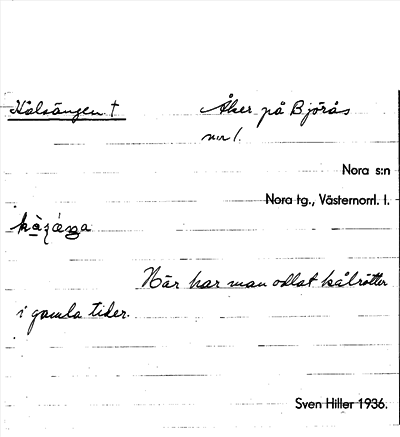 Kålsängen † Åker på Björås
nr 1.
Nora s:n
Nora tg., Västernorrl. l.
När har man odlat kålrötter
i gamla tider.
Sven Hiller 1936.